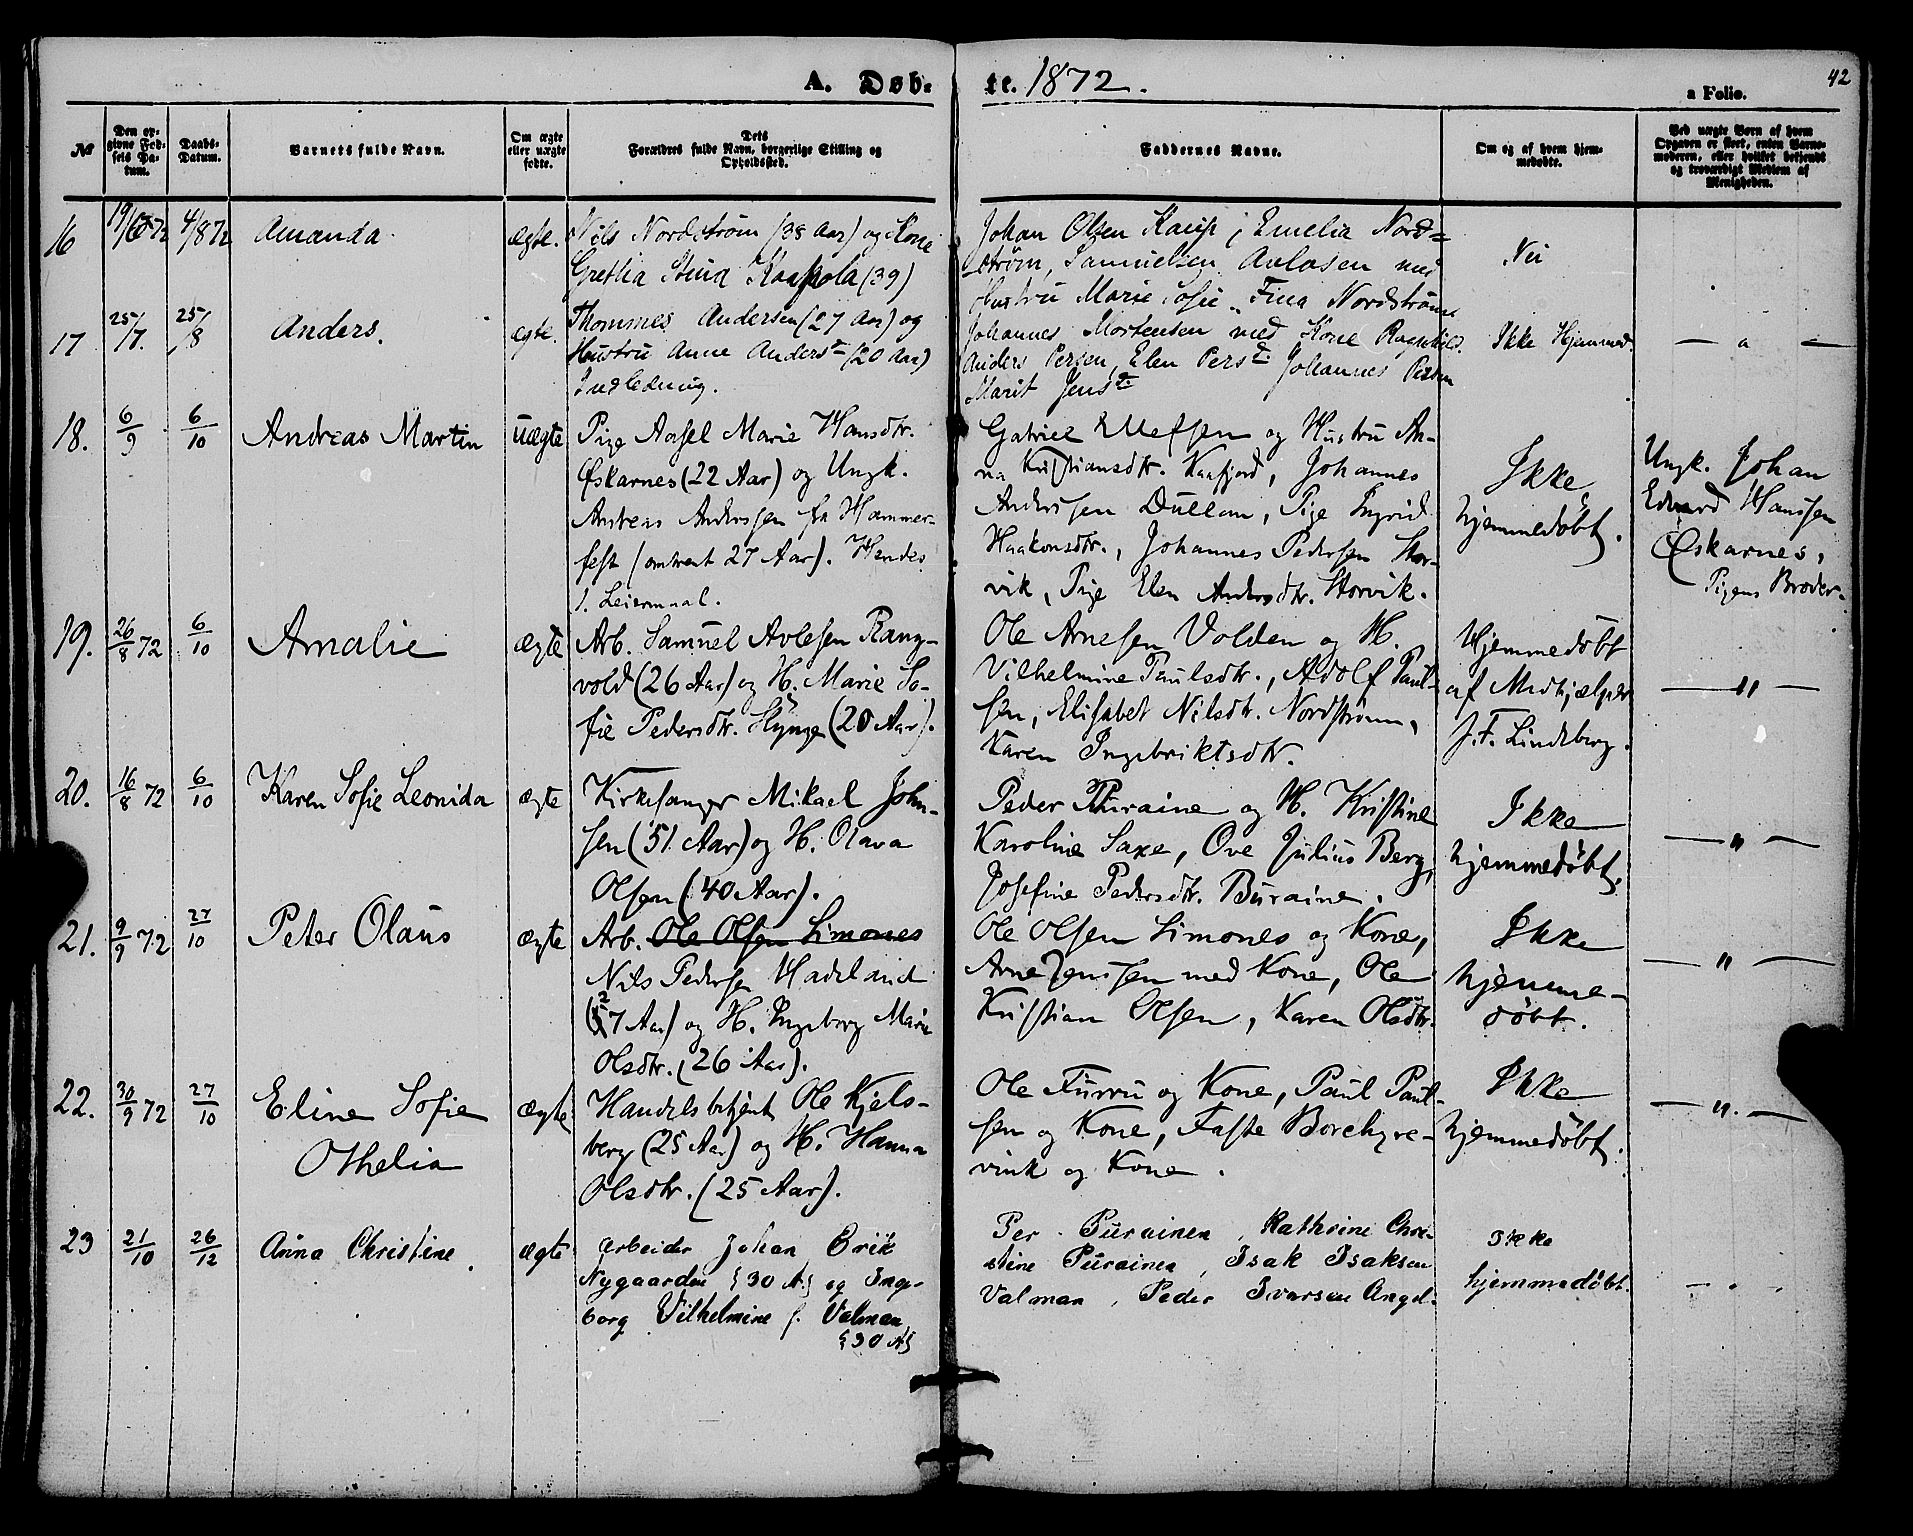 A. Døb-
te. 1872.
42
a Folio.
№
Den op-
givne Fød-
sels Da-
tum.
Daabs-
Datum.
Barnets fulde Navn.
Om ægte
eller uægte
fødte.
Dets
Forældres fulde Navn, borgerlige Stilling og
Opholdssted.
Faddernes Navne.
Om og af hvem hjem-
medøbte.
Ved uægte Børn af hvem
Opgaven er skeet, enten Barne-
moderen, eller hvilket bekjendt
og troværdigt Medlem af
Menigheden.
16
19/6 72
4/8 72
Amanda
ægte.
Nils Nordstrøm (38 Aar) og Kone
Gretha Stina (39)
Johan Olsen ; Emelia Nord=
strøm, Samuelsen med
Hustru Marie Sofie Nordstrøm
Nei
17
25/7.
25/8
Anders.
ægte.
Thommes Andersen (27 Aar) og
Hustru Anne Andersd (20 Aar)
Indledning.
Johannes Mortensen med Kone Ragnhild.
Anders Persen, Elen Persd. Johannes Persen
Marit Jensd.
Ikke Hjemmed.
— " —
18.
6/9
6/10
Andreas Martin
uægte
Pige Aasel Marie Hansdtr.
Øskarnes (22 Aar) og Ungk.
Andreas Anderssen fra Hammer-
fest (omtrent 27 Aar). Hendes
1. Leiermaal.
Gabriel og Hustru An-
na Kristiansdtr. Kaafjord, Johannes
Anderssen, Pige Ingrid
Haakonsdtr., Johannes Pedersen Stor-
vik, Pige Elen Andersdtr. Storvik.
Ikke
hjemmedøbt.
Ungk. Johan
Edvard Hanssen
Øskarnes,
Pigens Broder.
19.
26/8 72
6/10
Amalie
ægte
Arb. Samuel Avlesen Rang-
vold (26 Aar) og H. Marie So-
fie Pedersdtr. Hynge (20 Aar).
Ole Arnesen Volden og H.
Vilhelmine Paulsdtr., Adolf Paul-
sen, Elisabet Nilsdtr. Nordstrøm,
Karen Ingebriktsdtr.
Hjemmedøbt
af Medhjælper
J. F. Lindeberg.
— " —
20.
16/8 72
6/10
Karen Sofie Leonida
ægte
Kirkesanger Mikael John-
sen (51 Aar) og H. Olava
Olsen (40 Aar).
Peder Puraine og H. Kristine
Karoline Saxe, Ove Julius Berg,
Josefine Pedersdtr. Buraine.
Ikke
hjemmedøbt.
— " —
21.
9/9 72
27/10
Peter Olaus
ægte
Arb. Ole Olsen Simones
Nils Pedersen Hadeland
(27 Aar) og H. Ingeborg Marie
Olsdtr. (26 Aar).
Ole Olsen Simones og Kone,
Arne Jenssen med Kone, Ole
Kristian Olsen, Karen Olsdtr.
Ikke
hjemme-
døbt.
— " —
22.
30/9 72
27/10
Eline Sofie
Othelia
ægte
Handelsbetjent Ole Kjels-
berg (25 Aar) og H. Hanna
Olsdtr. (25 Aar).
Ole Furru og Kone, Paul Paul-
sen og Kone, Faste Borchgre-
vink og Kone.
Ikke
hjemmedøbt.
— " —
23
21/10
26/12
Anna Christine.
ægte
Arbeider Johan Erik
Nygaarden {30 A} og Inge-
borg Vilhelmine f. Valman
{30 A}
Per Purainen, Kathrine Chri-
stine Purainen, Isak Isaksen
Valman, Peder Ivarsen Angel.
Ikke
hjemmedøbt.
— " —